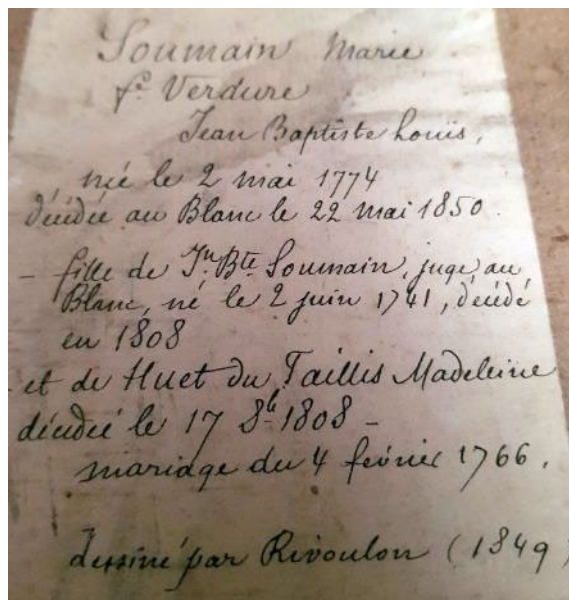 Soumain Marie
fe Verdure
Jean Baptiste Louis,
né le 2 mai 1774
décédée au Blanc le 22 mai 1850
- fille de Jn Bte Soumain, juge au
Blanc, né le 2 juin 1741, décédé
en 1808
- et de Huet du Taillis Madeleine
décédée le 17 8bre 1808 -
mariage du 4 février 1766.
dessiné par Rivoulon (1849)